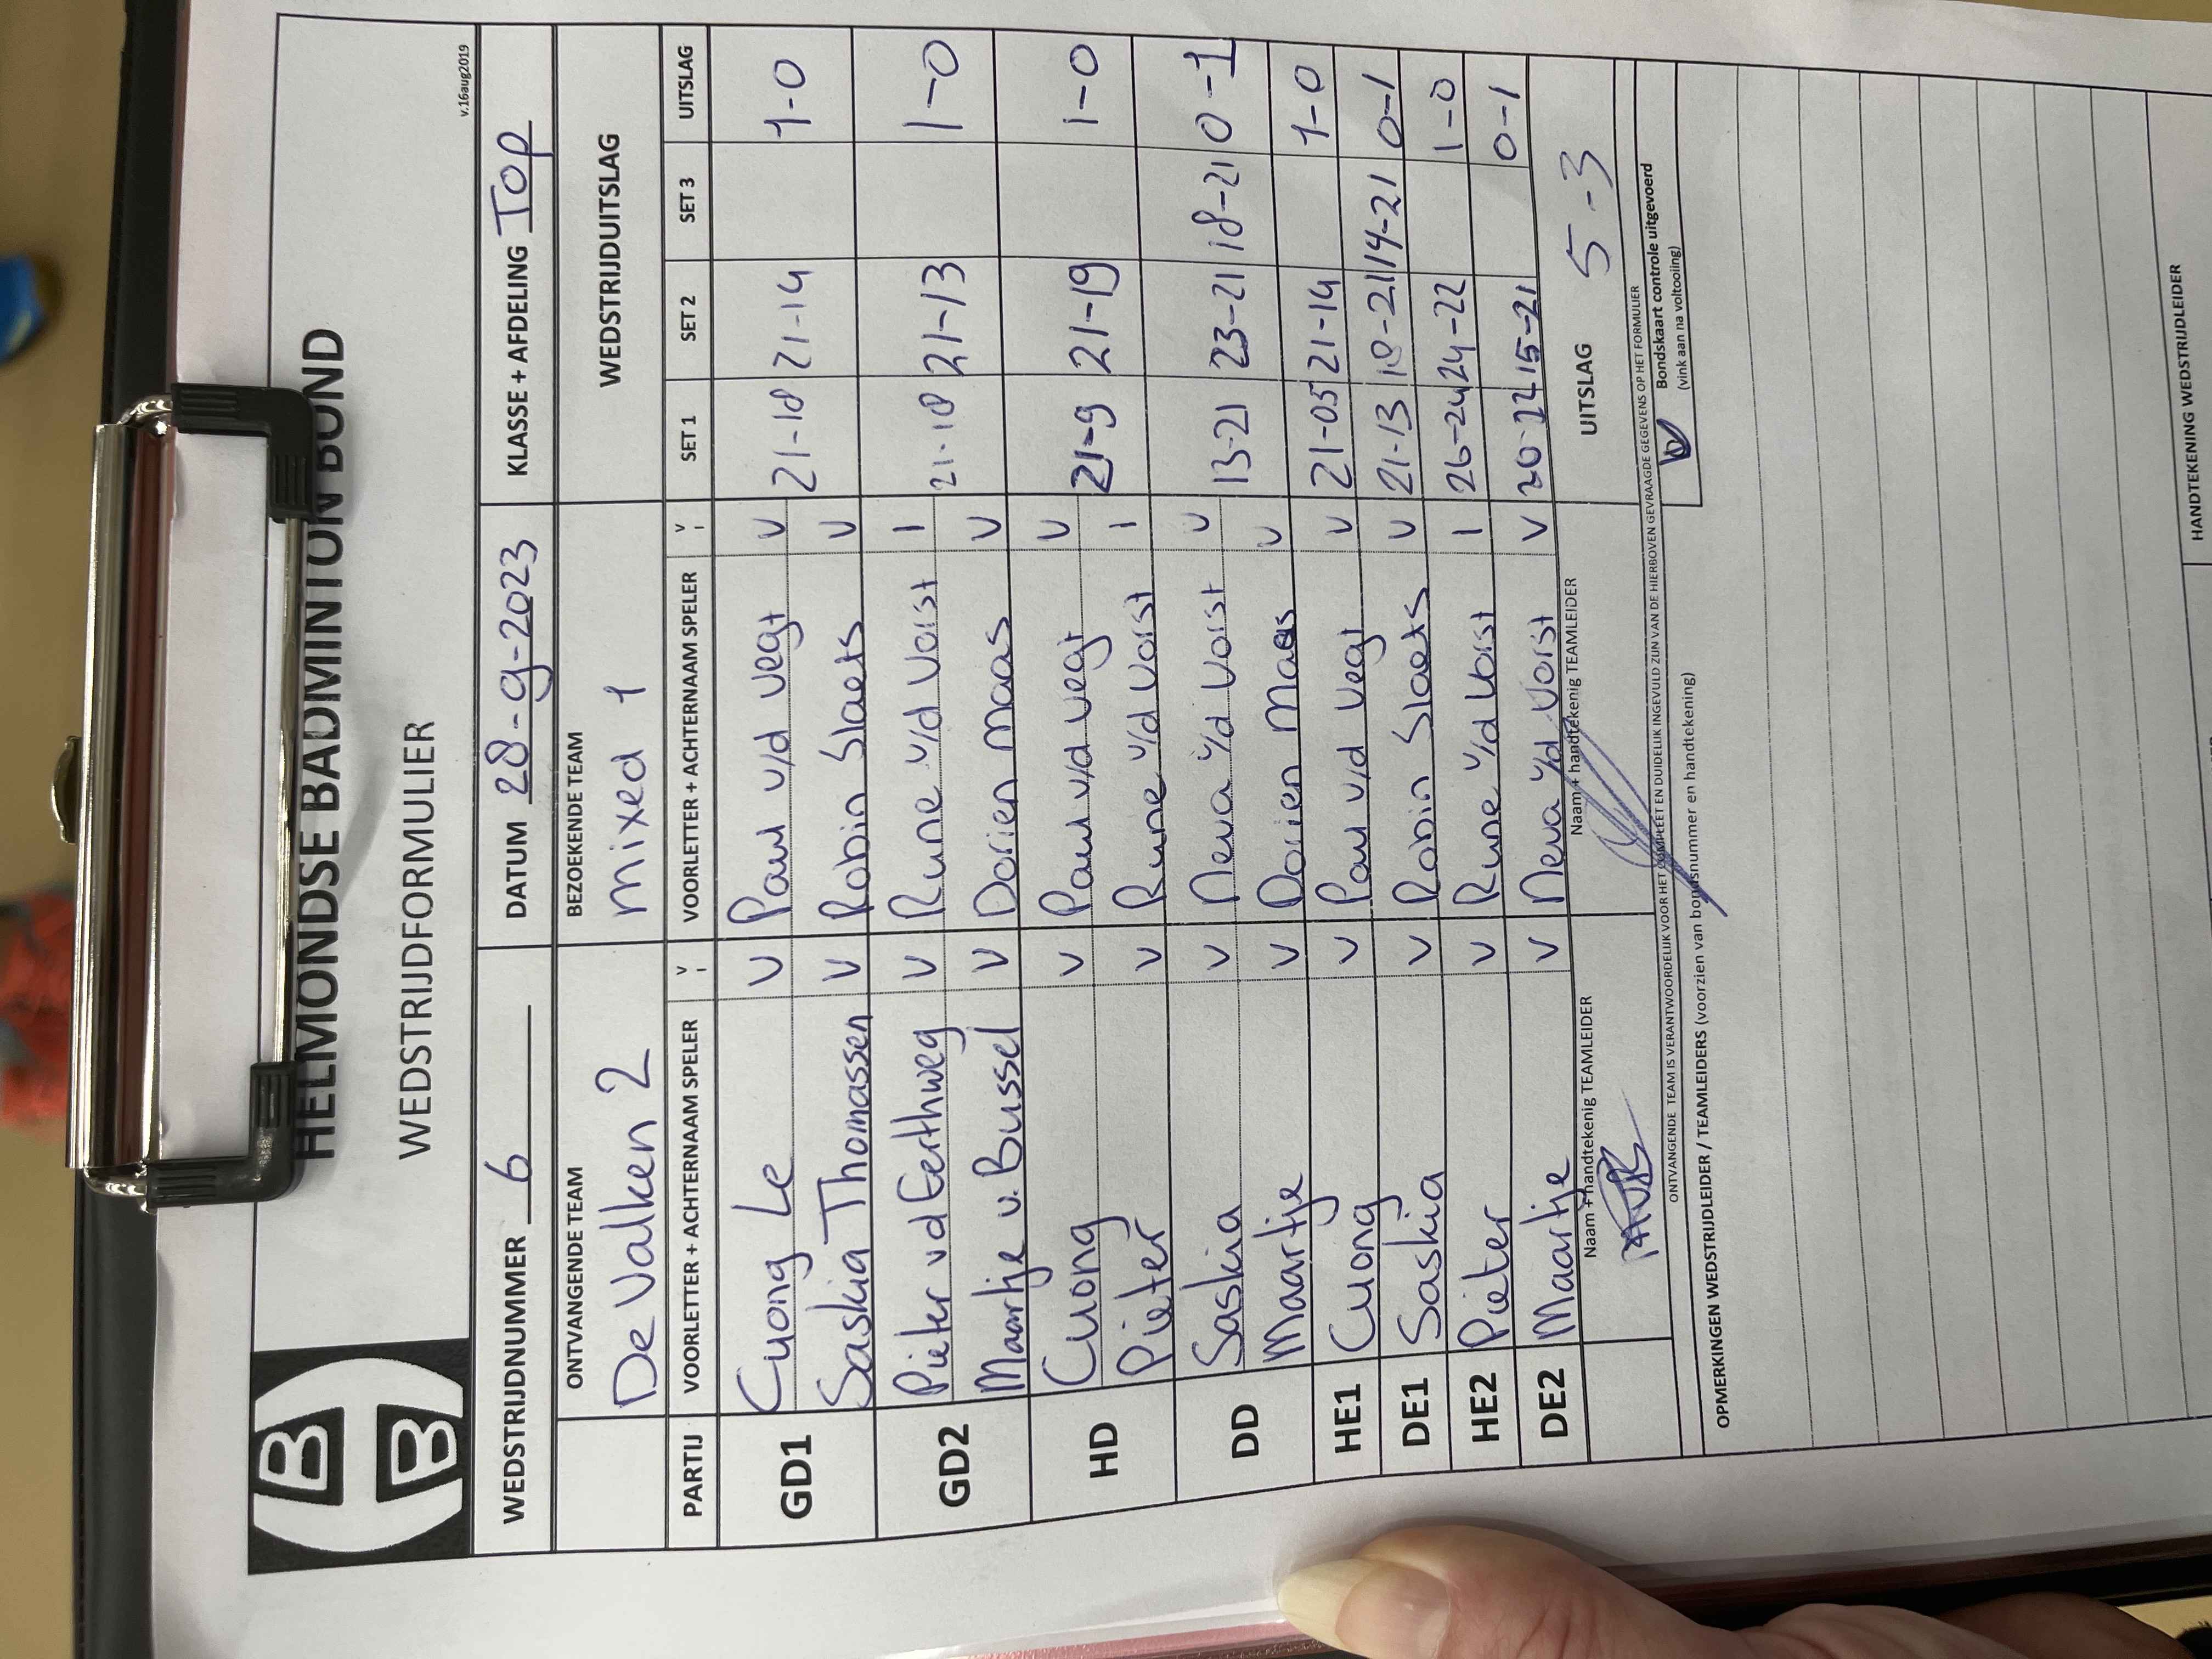 HELMONDSE BADMINTON BOND
WEDSTRIJDFORMULIER
v.16aug2019
WEDSTRIJDNUMMER 6 DATUM 28-9-2023 KLASSE + AFDELING Top
ONTVANGENDE TEAM BEZOEKENDE TEAM WEDSTRIJDUITSLAG
De Valken 2 mixed 1
PARTIJ VOORLETTER + ACHTERNAAM SPELER V - VOORLETTER + ACHTERNAAM SPELER V - SET 1 SET 2 SET 3 UITSLAG
GD1 Cuong Le V Paul v/d Vegt V 21-18 21-14 1-0
Saskia Thomassen V Robin Slaets V
GD2 Pieter vd Eerthweg V Rune v/d Vorst I 21-18 21-13 1-0
Maartje v. Bussel V Dorien Maas V
HD Cuong V Paul v/d Vegt V 21-9 21-19 1-0
Pieter V Rune v/d Vorst I
DD Saskia V Neva v/d Vorst V 13-21 23-21 18-21 0-1
Maartje V Dorien Maas V
HE1 Cuong V Paul v/d Vegt V 21-05 21-14 1-0
DE1 Saskia V Robin Slaets V 21-13 18-21 14-21 0-1
HE2 Pieter V Rune v/d Vorst I 26-24 24-22 1-0
DE2 Maartje V Neva v/d Vorst V 15-21 0-1
Naam + handtekenig TEAMLEIDER Naam + handtekenig TEAMLEIDER UITSLAG 5-3
ONTVANGENDE TEAM IS VERANTWOORDELIJK VOOR HET COMPLEET EN DUIDELIJK INGEVULD ZIJN VAN DE HIERBOVEN GEVRAAGDE GEGEVENS OP HET FORMULIER
OPMERKINGEN WEDSTRIJDLEIDER / TEAMLEIDERS (voorzien van bondsnummer en handtekening)
V Bondskaart controle uitgevoerd
(vink aan na voltooiing)
HANDTEKENING WEDSTRIJDLEIDER